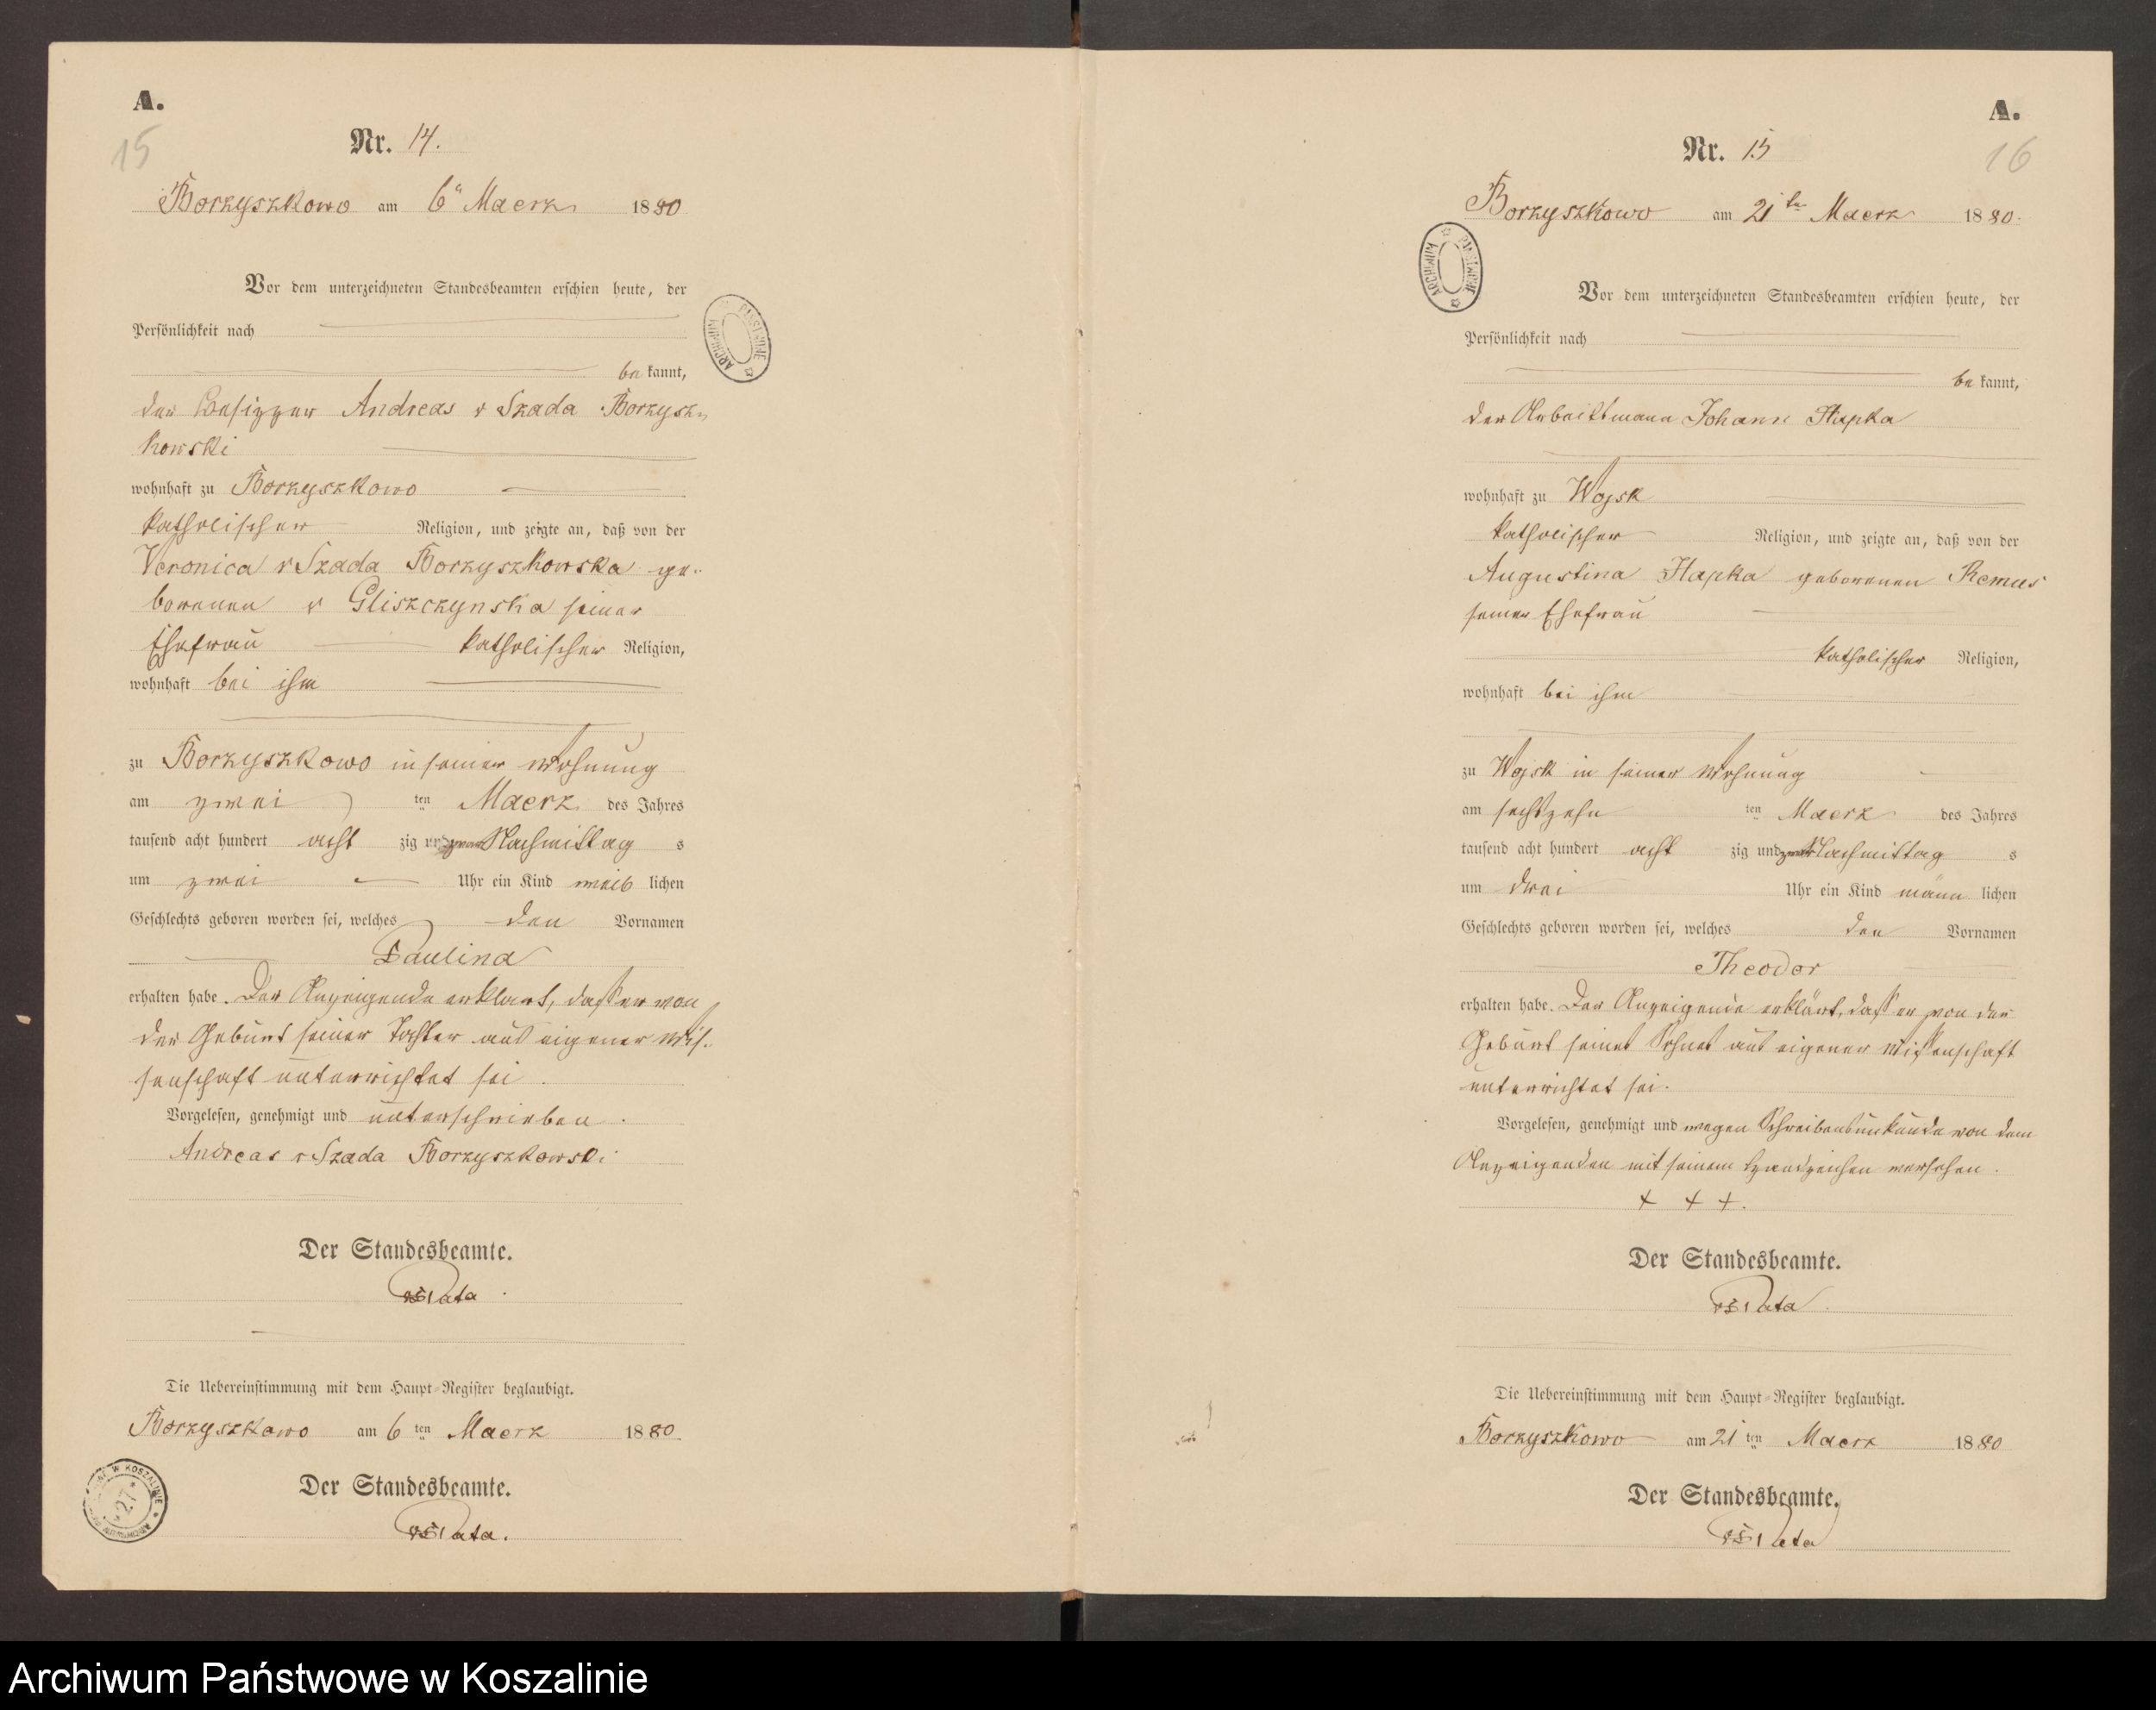 A.
15
Nr. 14.
Borzyszkowo am 6ten Maerz 1880
Vor dem unterzeichneten Standesbeamten erschien heute, der
Persönlichkeit nach
be kannt,
der Besitzer Andreas v Szada Borzysz-
kowski
wohnhaft zu Borzyszkowo
katholischer Religion, und zeigte an, daß von der
Veronica v Szada Borzyszkowska ge-
borenen v Gliszczynska seiner
Ehefrau katholischer Religion,
wohnhaft bei ihm
zu Borzyszkowo in seiner Wohnung
am zwei ten Maerz des Jahres
tausend acht hundert acht zig und zwar Nachmittag s
um zwei Uhr ein Kind weib lichen
Geschlechts geboren worden sei, welches den Vornamen
Paulina
erhalten habe. Der Anzeigende erklärt, daß er von
der Geburt seiner Tochter aus eigener Wis-
senschaft unterrichtet sei.
Vorgelesen, genehmigt und unterschrieben.
Andreas v Szada Borzyszkowski
Der Standesbeamte.
Die Uebereinstimmung mit dem Haupt-Register beglaubigt.
Borzyszkowo am 6 ten Maerz 1880
Der Standesbeamte.
ARCHIWUM PAŃSTWOWE W KOSZALINIE
27
ARCHIWUM PAŃSTWOWE
A.
16
Nr. 15
Borzyszkowo am 21 ten Maerz 1880.
ARCHIWUM PAŃSTWOWE
Vor dem unterzeichneten Standesbeamten erschien heute, der
Persönlichkeit nach
be kannt,
der Arbeitsmann Johann Hapka
wohnhaft zu Wojsk
katholischer Religion, und zeigte an, daß von der
Augustina Hapka geborenen Remus
seiner Ehefrau
katholischer Religion,
wohnhaft bei ihm
zu Wojsk in seiner Wohnung
am sechszehn ten Maerz des Jahres
tausend acht hundert acht zig und zwar Nachmittag s
um drei Uhr ein Kind männ lichen
Geschlechts geboren worden sei, welches den Vornamen
Theodor
erhalten habe. Der Anzeigende erklärt, daß er von der
Geburt seines Sohnes aus eigener Wissenschaft
unterrichtet sei.
Vorgelesen, genehmigt und wegen Schreibensunkunde von dem
Anzeigenden mit seinem Handzeichen versehen.
+ + +.
Der Standesbeamte.
Die Uebereinstimmung mit dem Haupt-Register beglaubigt.
Borzyszkowo am 21 ten Maerz 1880
Der Standesbeamte.
Archiwum Państwowe w Koszalinie